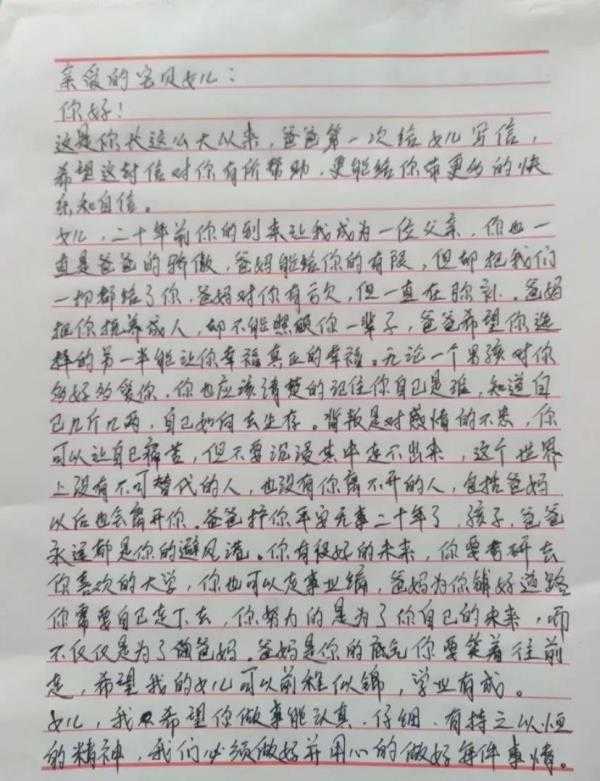 亲爱的宝贝女儿：
你好！
这是你长这么大以来，爸爸第一次给女儿写信，
希望这封信对你有所帮助，更能给你带更多的快
乐和自信。
女儿，二十年前你的到来让我成为一位父亲，你也一
直是爸爸的骄傲，爸妈能给你的有限，但却把我们
一切都给了你，爸妈对你有亏欠，但一直在弥补。爸妈
把你抚养成人，却不能照顾你一辈子，爸爸希望你选
择的另一半能让你幸福真正的幸福。无论一个男孩对你
多好多爱你，你也应该清楚的记住你自己是谁，知道自
己几斤几两，自己如何去生存。背叛是对感情的不忠，你
可以让自己痛苦，但不要沉浸其中走不出来，这个世界
上没有不可替代的人，也没有你离不开的人，包括爸妈
以后也会离开你。爸爸护你平安无事二十年了，孩子，爸爸
永远都是你的避风港。你有很好的未来，你要考研去
你喜欢的大学，你也可以走事业编，爸妈为你铺好道路
你需要自己走下去，你努力的是为了你自己的未来，而
不仅仅是为了爸妈。爸妈是你的底气你要笑着往前
走，希望我的女儿可以前程似锦，学业有成。
女儿，我只希望你做事能认真、仔细、有持之以恒
的精神，我们必须做好并用心的做好每件事情。